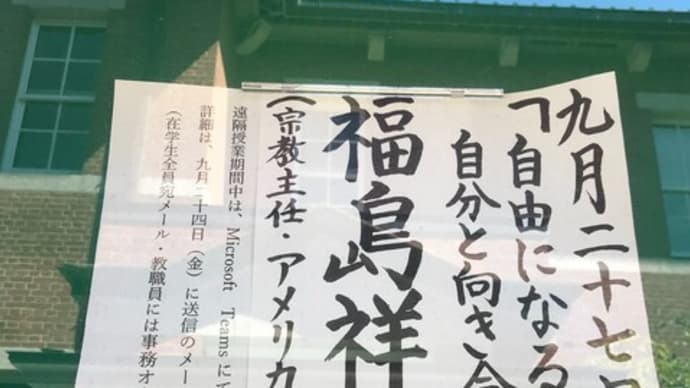 九月二十七
「自由になる
自分と向き合
福島祥
(宗教主任・アメリカ
遠隔授業期間中は、Microsoft Teams に
詳細は、九月二十四日(金)に送信のメー
(在学生全員宛メール・教職員には事務オ